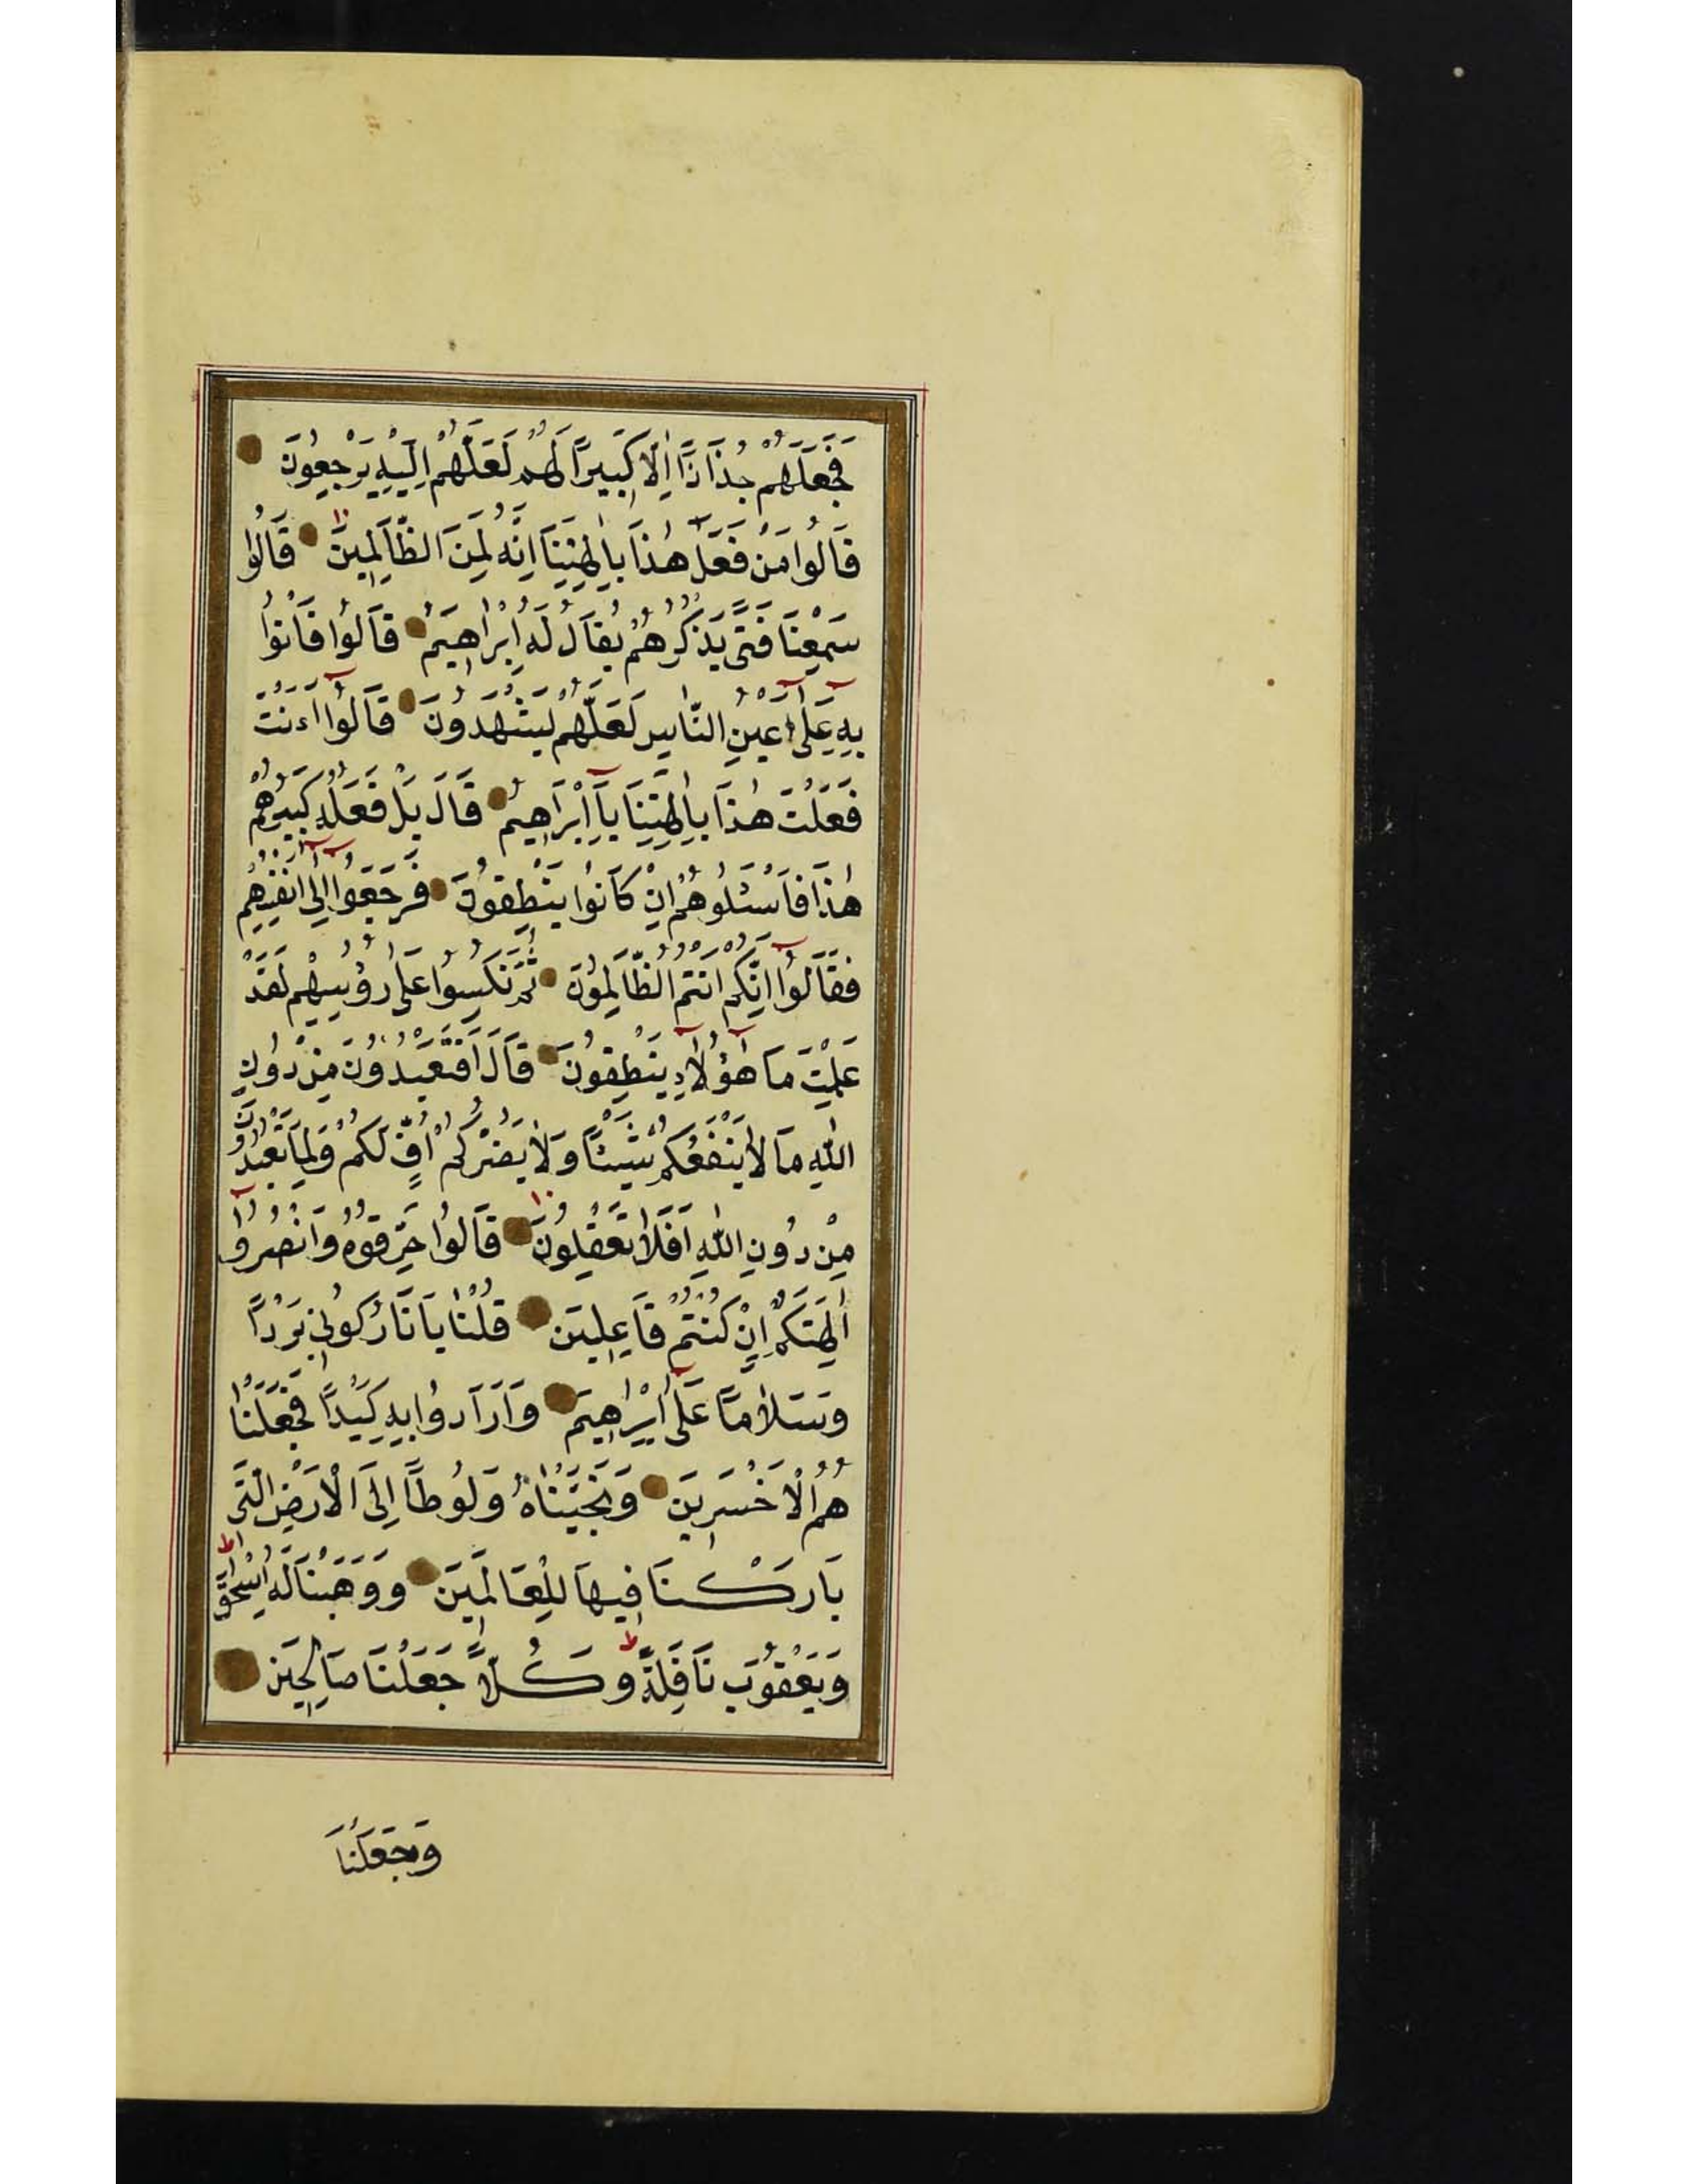 فَجَعَلَهُمْ جُذَاذًا اِلَّا كَبِيرًا لَهُمْ لَعَلَّهُمْ اِلَيْهِ يَرْجِعُونَ
قَالُوا مَنْ فَعَلَ هٰذَا بِاٰلِهَتِنَا اِنَّهُ لَمِنَ الظَّالِمِينَ قَالُوا
سَمِعْنَا فَتًى يَذْكُرُهُمْ يُقَالُ لَهُ اِبْرٰاهِيمُ قَالُوا فَأْتُوا
بِهِ عَلٰى اَعْيُنِ النَّاسِ لَعَلَّهُمْ يَشْهَدُونَ قَالُوا ءَاَنْتَ
فَعَلْتَ هٰذَا بِاٰلِهَتِنَا يَا اِبْرَاهِيمُ قَالَ بَلْ فَعَلَهُ كَبِيرُهُمْ
هٰذَا فَاسْئَلُوهُمْ اِنْ كَانُوا يَنْطِقُونَ فَرَجَعُوا اِلٰى اَنْفُسِهِمْ
فَقَالُوا اِنَّكُمْ اَنْتُمُ الظَّالِمُونَ ثُمَّ نُكِسُوا عَلٰى رُؤُسِهِمْ لَقَدْ
عَلِمْتَ مَا هٰؤُلَاءِ يَنْطِقُونَ قَالَ اَفَتَعْبُدُونَ مِنْ دُونِ
اللّٰهِ مَا لَا يَنْفَعُكُمْ شَيْئًا وَلَا يَضُرُّكُمْ اُفٍّ لَكُمْ وَلِمَا تَعْبُدُونَ
مِنْ دُونِ اللّٰهِ اَفَلَا تَعْقِلُونَ قَالُوا حَرِّقُوهُ وَانْصُرُوا
اٰلِهَتَكُمْ اِنْ كُنْتُمْ فَاعِلِينَ قُلْنَا يَا نَارُ كُونِي بَرْدًا
وَسَلَامًا عَلٰى اِبْرٰاهِيمَ وَاَرَادُوا بِهِ كَيْدًا فَجَعَلْنَا
هُمُ الْاَخْسَرِينَ وَنَجَّيْنَاهُ وَلُوطًا اِلَى الْاَرْضِ الَّتِى
بَارَكْنَا فِيهَا لِلْعَالَمِينَ وَوَهَبْنَا لَهُ اِسْحٰقَ
وَيَعْقُوبَ نَافِلَةً وَكُلًّا جَعَلْنَا صَالِحِينَ
وَجَعَلْنَا